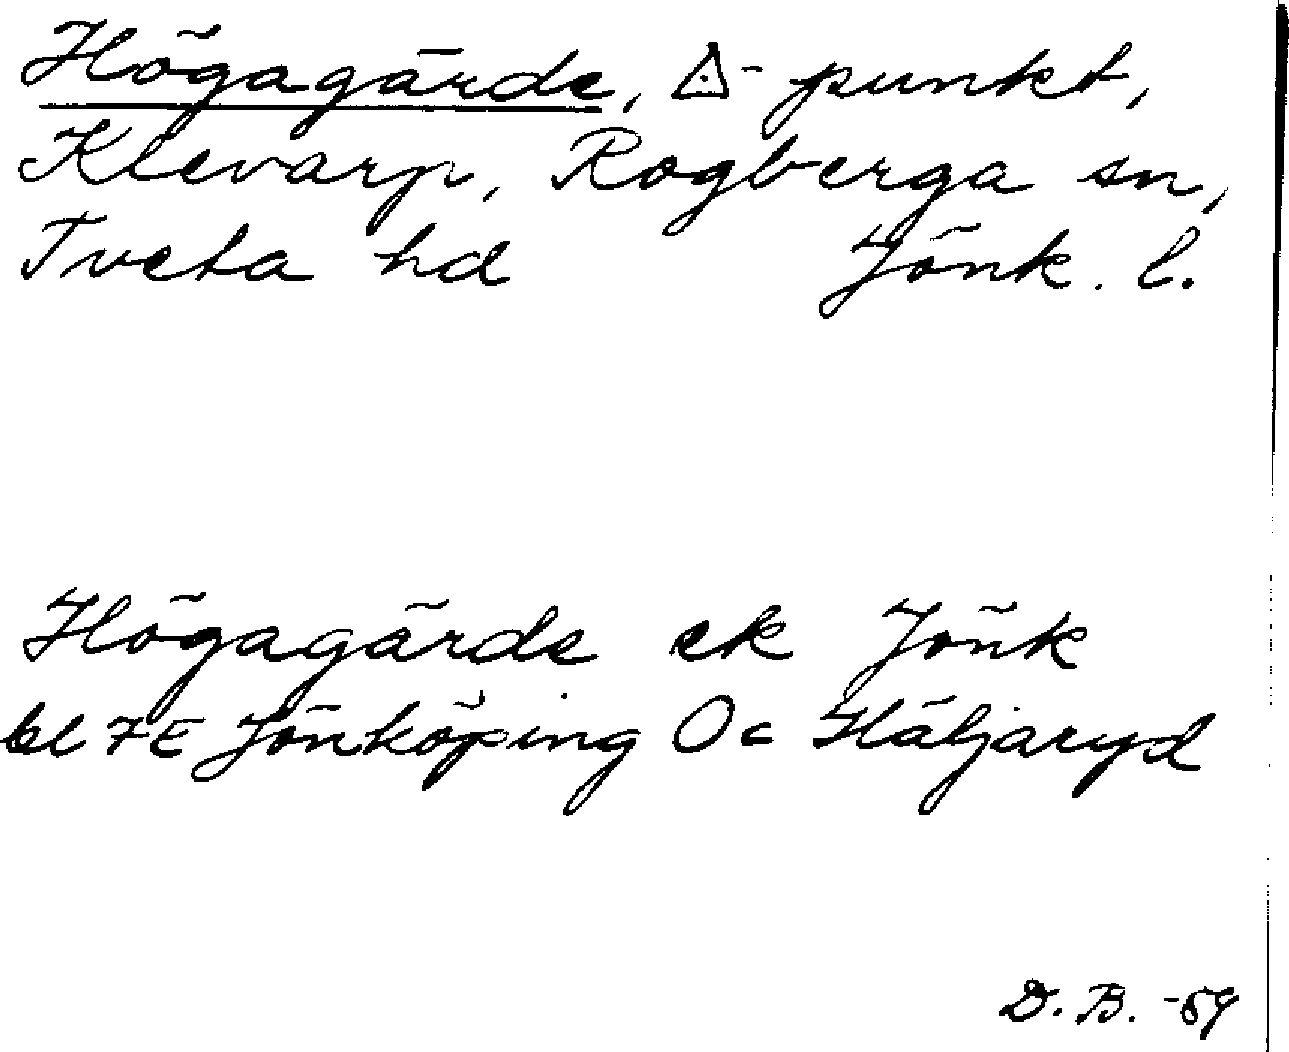 Högagärde, △-punkt,
Klevarp, Rogberga sn,
Tveta hd Jönk. l.
Högagärde ek Jönk
bl 7E Jönköping Oc Häljaryd
D. B. -59